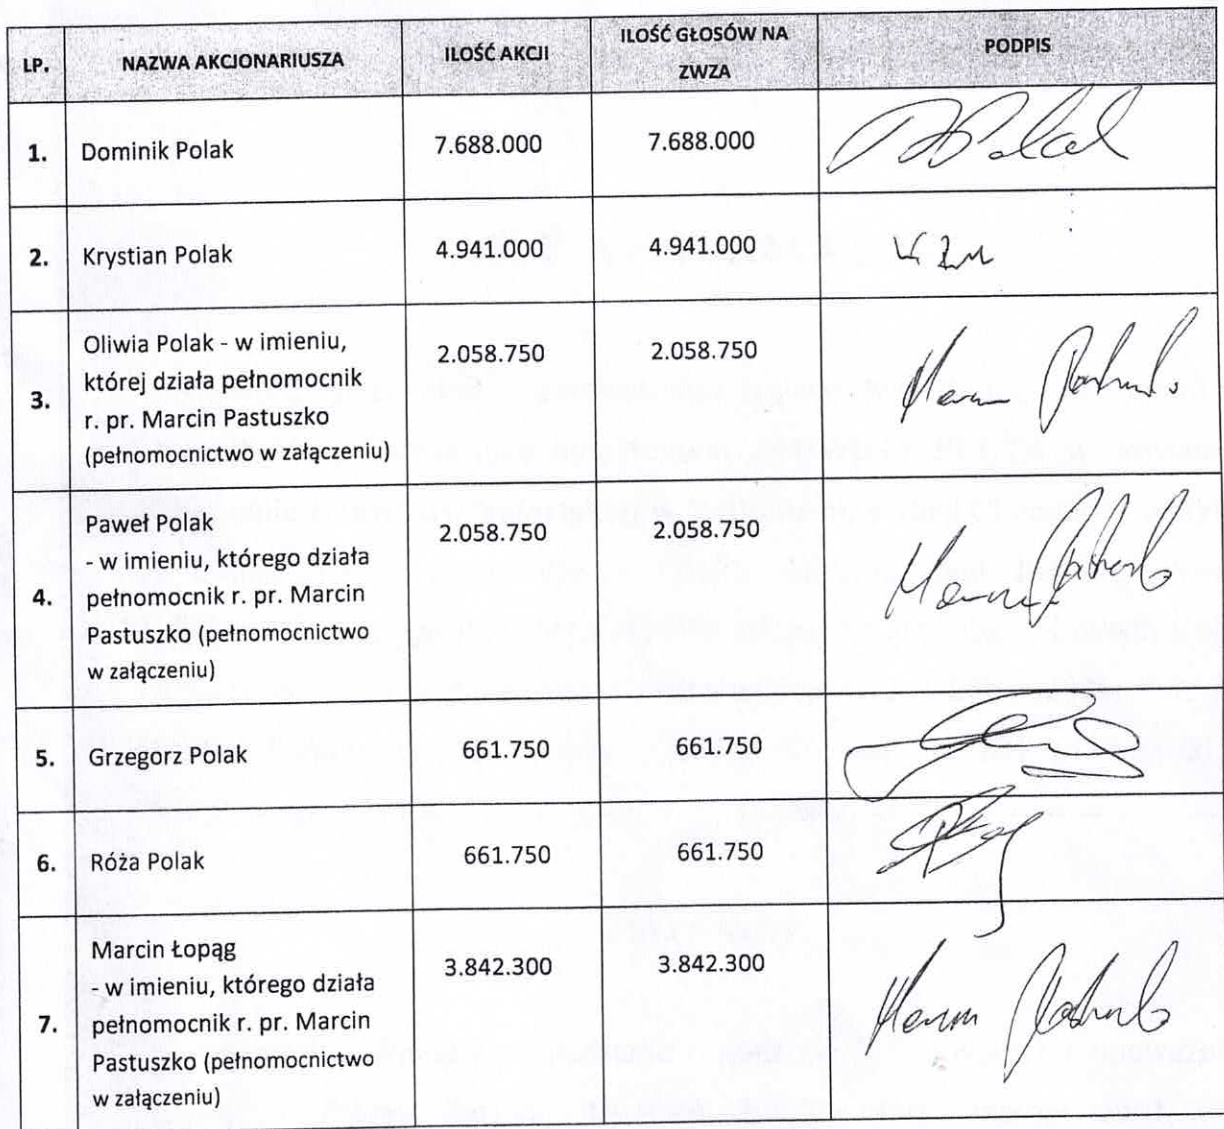 LP. NAZWA AKCJONARIUSZA ILOŚĆ AKCJI ILOŚĆ GŁOSÓW NA ZWZA PODPIS
1. Dominik Polak 7.688.000 7.688.000
2. Krystian Polak 4.941.000 4.941.000
3. Oliwia Polak - w imieniu, 2.058.750 2.058.750
której działa pełnomocnik
r. pr. Marcin Pastuszko
(pełnomocnictwo w załączeniu)
4. Paweł Polak 2.058.750 2.058.750
- w imieniu, którego działa
pełnomocnik r. pr. Marcin
Pastuszko (pełnomocnictwo
w załączeniu)
5. Grzegorz Polak 661.750 661.750
6. Róża Polak 661.750 661.750
7. Marcin Łopąg 3.842.300 3.842.300
- w imieniu, którego działa
pełnomocnik r. pr. Marcin
Pastuszko (pełnomocnictwo
w załączeniu)